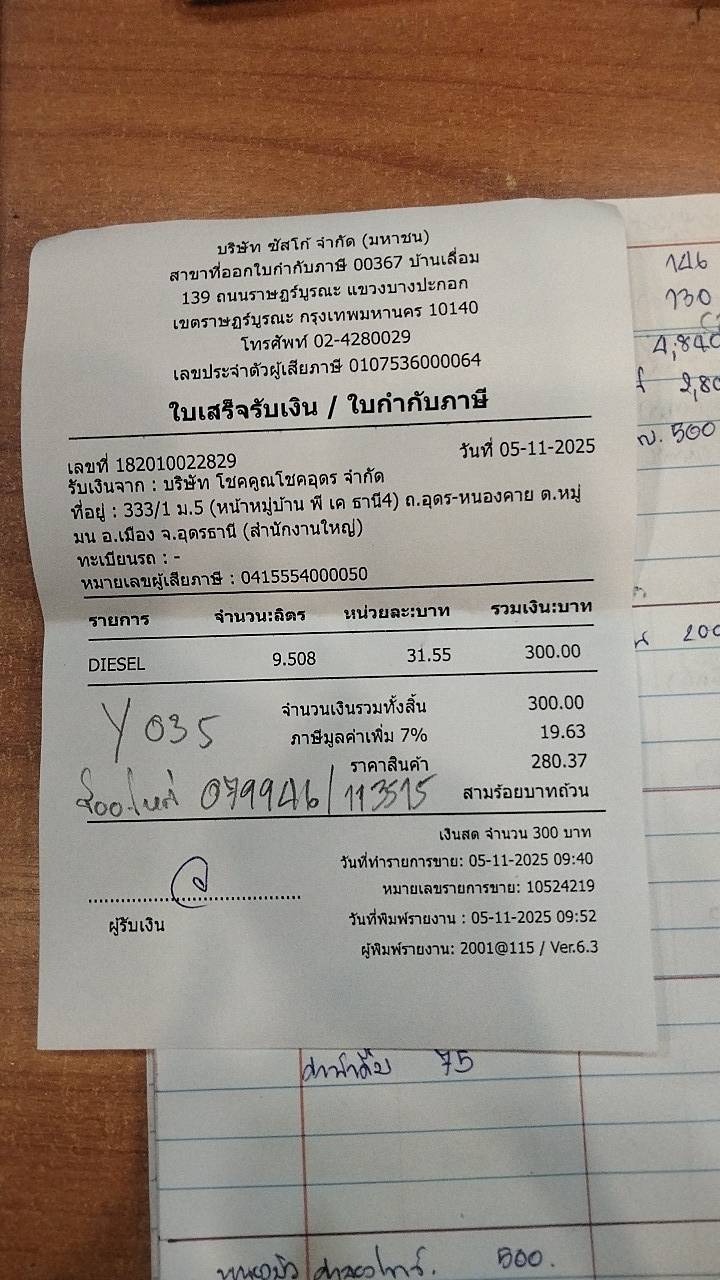 บริษัท ซัสโก้ จำกัด (มหาชน)
สาขาที่ออกใบกำกับภาษี 00367 บ้านเลื่อม
139 ถนนราษฎร์บูรณะ แขวงบางปะกอก
เขตราษฎร์บูรณะ กรุงเทพมหานคร 10140
โทรศัพท์ 02-4280029
เลขประจำตัวผู้เสียภาษี 0107536000064
ใบเสร็จรับเงิน / ใบกำกับภาษี
เลขที่ 182010022829 วันที่ 05-11-2025
รับเงินจาก : บริษัท โชคคูณโชคอุดร จำกัด
ที่อยู่ : 333/1 ม.5 (หน้าหมู่บ้าน พี เค ธานี4) ถ.อุดร-หนองคาย ต.หมู่
มน อ.เมือง จ.อุดรธานี (สำนักงานใหญ่)
ทะเบียนรถ : -
หมายเลขผู้เสียภาษี : 0415554000050
รายการ จำนวน:ลิตร หน่วยละ:บาท รวมเงิน:บาท
DIESEL 9.508 31.55 300.00
จำนวนเงินรวมทั้งสิ้น 300.00
Y 035
ภาษีมูลค่าเพิ่ม 7% 19.63
ราคาสินค้า 280.37
079946/113515 สามร้อยบาทถ้วน
เงินสด จำนวน 300 บาท
วันที่ทำรายการขาย: 05-11-2025 09:40
หมายเลขรายการขาย: 10524219
ผู้รับเงิน
วันที่พิมพ์รายงาน : 05-11-2025 09:52
ผู้พิมพ์รายงาน: 2001@115 / Ver.6.3
146
130
4,840
2,80
500
200
75
500.